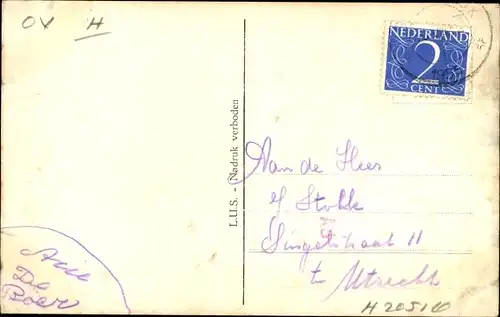 OX H
NEDERLAND
2
CENT
L.U.S. - Nadruk verboden
Aan de Heer
Stokke
Singelstraat 11
te Utrecht
De
Boer
H 20510